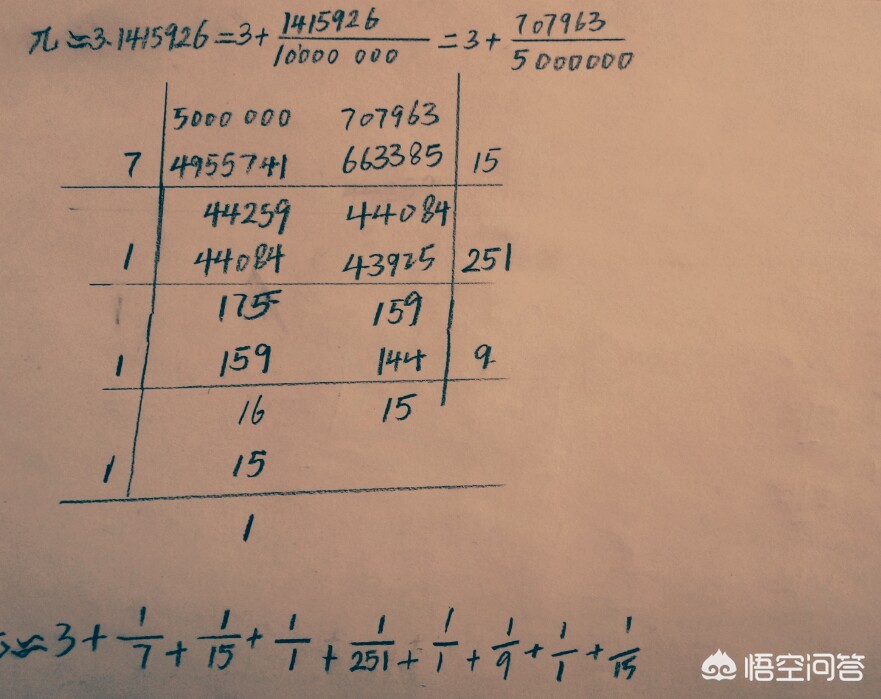 π≈3.1415926=3+1415926/10000 000=3+707963/5000000
5000 000 707963
7 4955741 663385 15
44259 44084
1 44084 43925 251
175 159
1 159 144 9
16 15
1 15
1
≈3+1/7+1/15+1/1+1/251+1/1+1/9+1/1+1/15
悟空问答